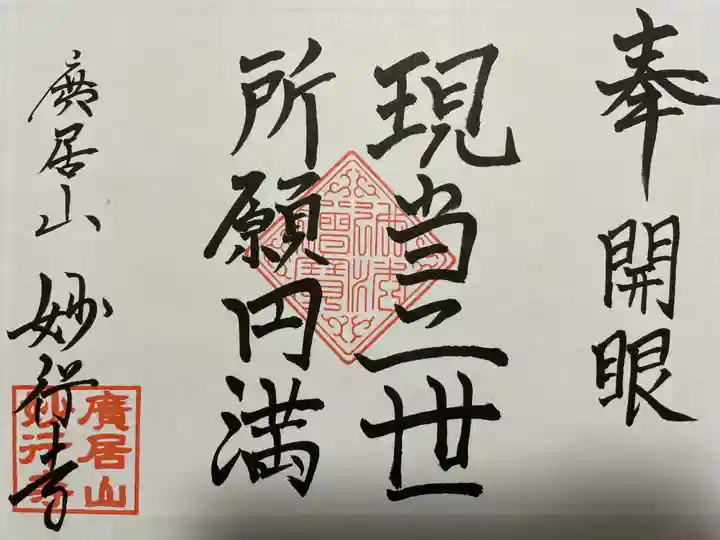 奉開眼
現当二世
所願円満
廣居山 妙行寺
佛法僧寳
廣居山
妙行寺